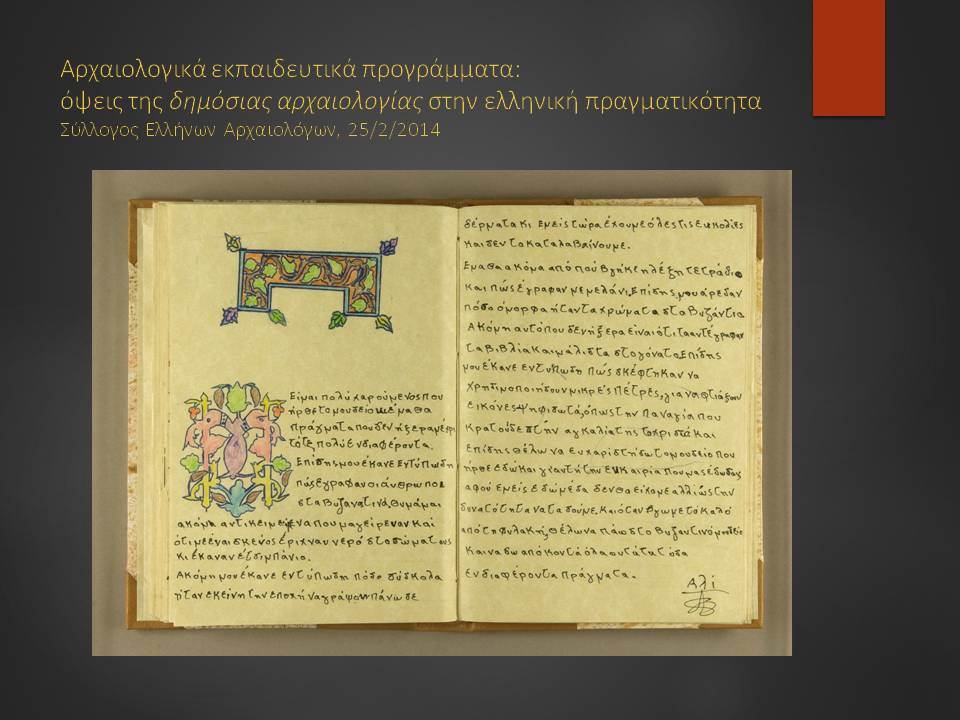 Αρχαιολογικά εκπαιδευτικά προγράμματα:
όψεις της δημόσιας αρχαιολογίας στην ελληνική πραγματικότητα
Σύλλογος Ελλήνων Αρχαιολόγων, 25/2/2014
Είμαι πολύ χαρούμενος που
ήρθε το μουσείο έμαθα
πράγματα που δεν ήξερα μέχρι
τότε πολύ ενδιαφέροντα.
Επίσης μου έκανε εντύπωση
πώς έγραφαν οι άνθρωποι
στα Βυζαντινά. Θυμάμαι
ακόμα αντικείμενα που μαγείρευαν και
ότι με ένα σκεύος έριχναν νερό στο σώμα τους
κι έκαναν έτσι μπάνιο.
Ακόμη μου έκανε εντύπωση πόσο δύσκολα
ήταν εκείνη την εποχή να γράφουν πάνω σε
δέρματα κι εμείς τώρα έχουμε όλες τις ευκολίες
και δεν το καταλαβαίνουμε.
Έμαθα ακόμα από πού βγήκε η λέξη τετράδιο
και πώς έγραφαν με μελάνι. Επίσης μου άρεσαν
πόσο όμορφα ήταν τα χρώματα στο Βυζάντιο
Ακόμη αυτό που δεν ήξερα είναι ότι τα αντέγραφαν
τα βιβλία και μάλιστα στο γόνατο. Επίσης
μου έκανε εντύπωση πώς σκέφτηκαν να
χρησιμοποιήσουν μικρές πέτρες, για να φτιάξουν
εικόνες ψηφιδωτά, όπως την Παναγία που
κρατούσε στην αγκαλιά της το χριστό και
επίσης θέλω να ευχαριστήσω το μουσείο που
ήρθε εδώ και για αυτή την ευκαιρία που μας έδωσε
αφού εμείς εδώ μέσα δεν θα είχαμε αλλιώς την
δυνατότητα να τα δούμε. Και όταν βγω με το καλό
από τη φυλακή, θέλω να πάω στο Βυζαντινό μουσείο
και να δω από κοντά όλα αυτά τα τόσα
ενδιαφέροντα πράγματα.
Αλί